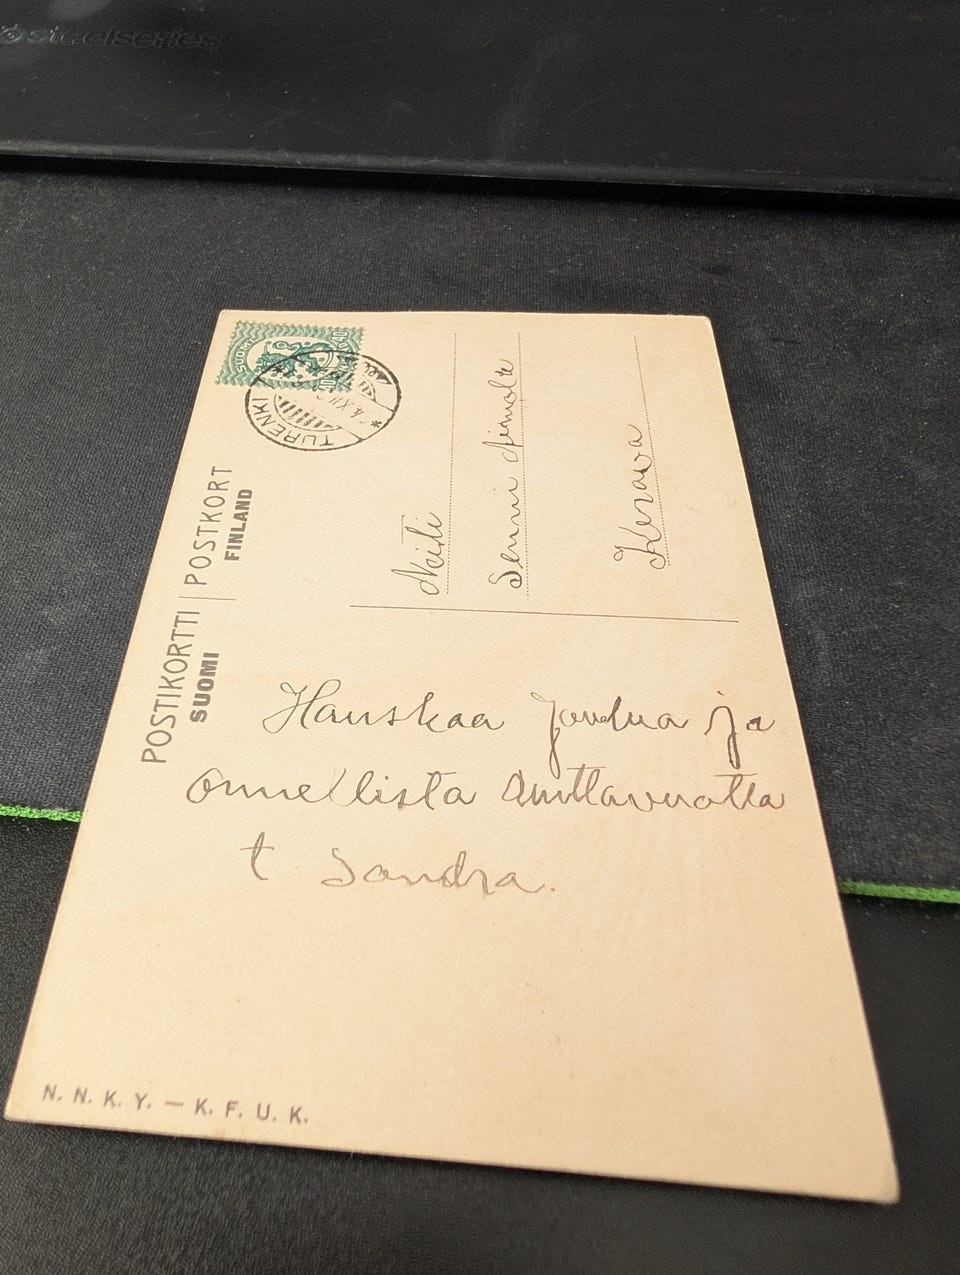 steelseries
SUOMI
40
TURENKI
4.XII
POSTIKORTTI | POSTKORT
SUOMI FINLAND
Neiti
Senni
Kerawa
Hauskaa Joulua ja
onnellista Uuttavuotta
t Sandra.
N. N. K. Y. — K. F. U. K.